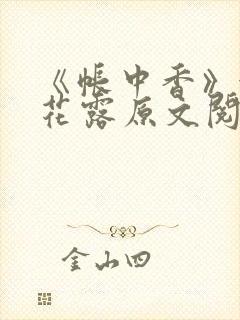 《帐中香》
花露原文阅
金山四